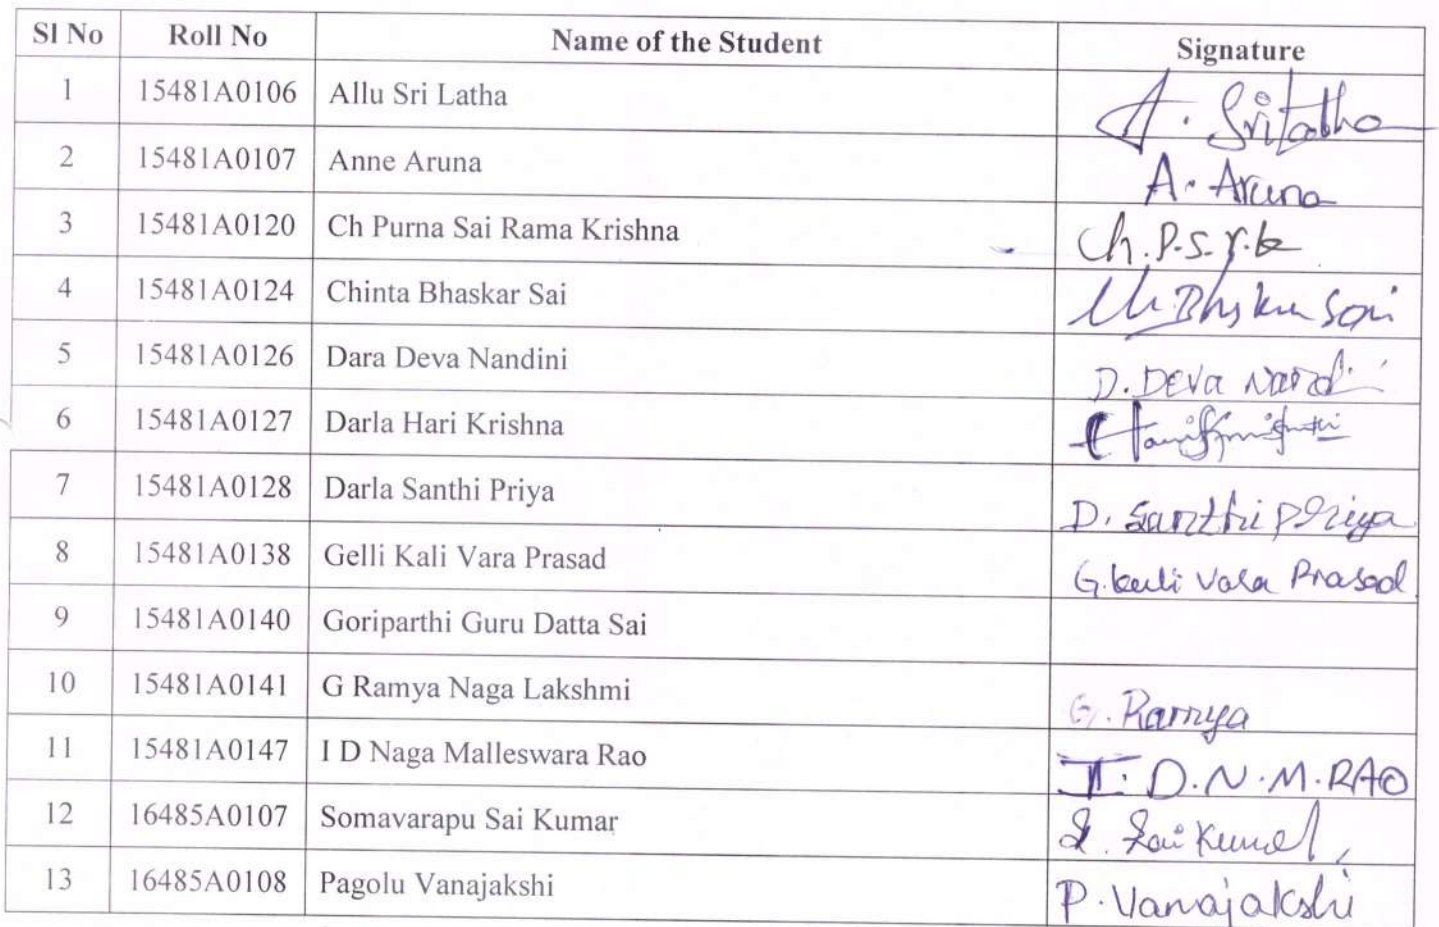 Sl No Roll No Name of the Student Signature
1 15481A0106 Allu Sri Latha A. Srilatha
2 15481A0107 Anne Aruna A. Aruna
3 15481A0120 Ch Purna Sai Rama Krishna Ch.P.S.r.k
4 15481A0124 Chinta Bhaskar Sai Sai
5 15481A0126 Dara Deva Nandini D. Deva
6 15481A0127 Darla Hari Krishna
7 15481A0128 Darla Santhi Priya D. Santhi Priya
8 15481A0138 Gelli Kali Vara Prasad G. Kali Vara Prasad
9 15481A0140 Goriparthi Guru Datta Sai
10 15481A0141 G Ramya Naga Lakshmi G. Ramya
11 15481A0147 I D Naga Malleswara Rao I. D.N.M.RAO
12 16485A0107 Somavarapu Sai Kumar S. Sai Kumar
13 16485A0108 Pagolu Vanajakshi P. Vanajakshi